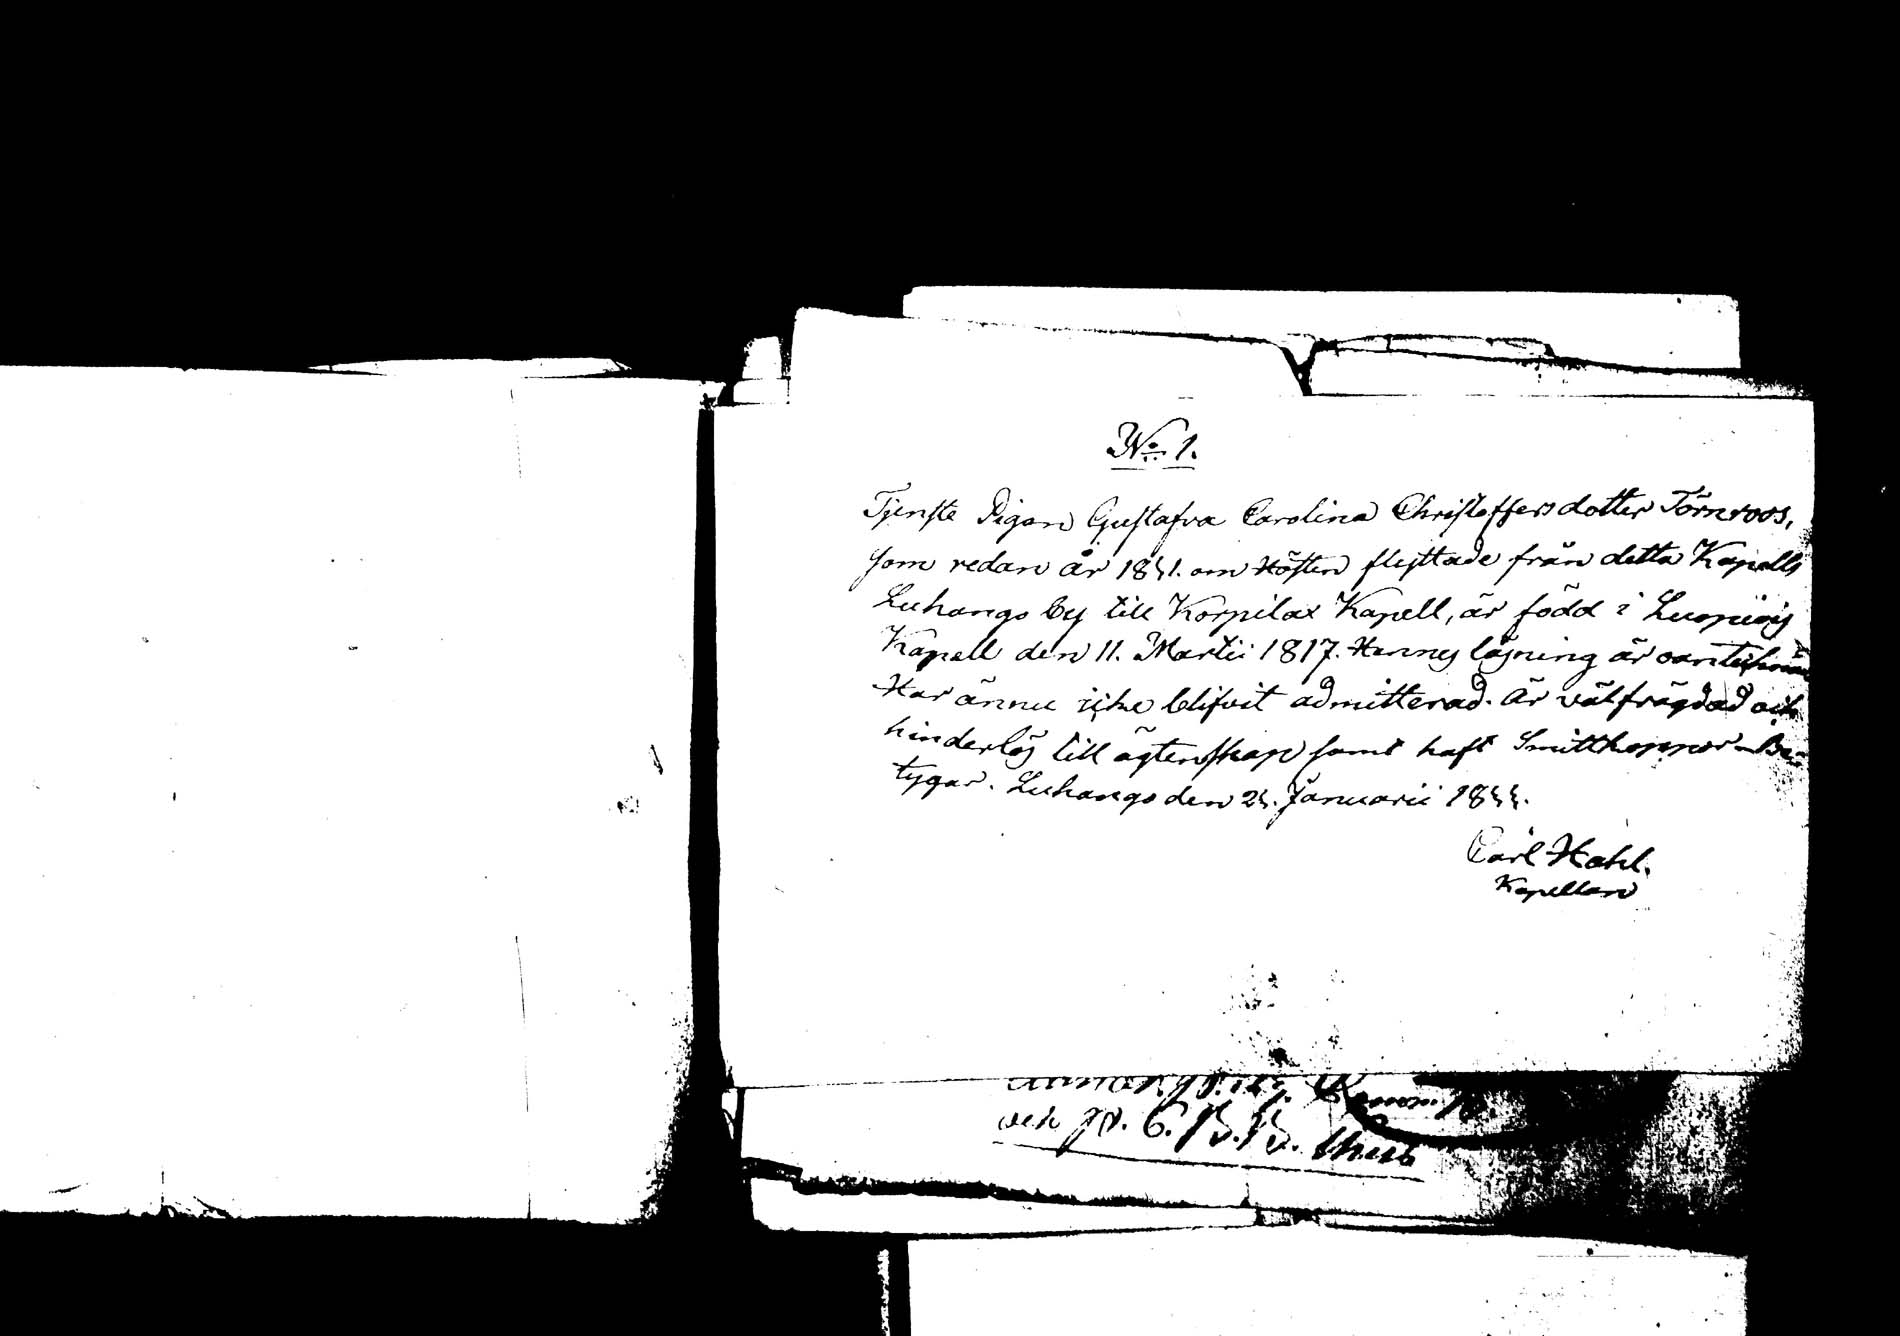 No 1.
Tjenste Pigan Gustafva Carolina Christoffersdotter Törnroos,
som redan år 1841. om Hösten flyttade från detta Kapells
Luhango by till Korpilax Kapell, är född i
Kapell den 11. Martii 1817. Hennes läsning är
Har ännu icke blifvit admitterad. Är välfrägdad och
hinderlös till ägtenskap samt haft Smittkoppor Be-
tygar. Luhango den 24. Januarii 1844.
Carl Hahl.
Kapellan
och